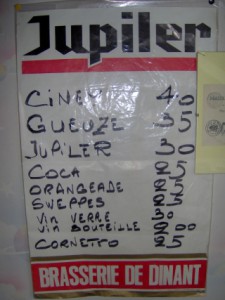 Jupiler
CINEY 40
GUEUZE 35
JUPILER 30
COCA 25
ORANGEADE 25
SWEPPES 25
VIN VERRE 30
VIN BOUTEILLE 200
CORNETTO 25
BRASSERIE DE DINANT